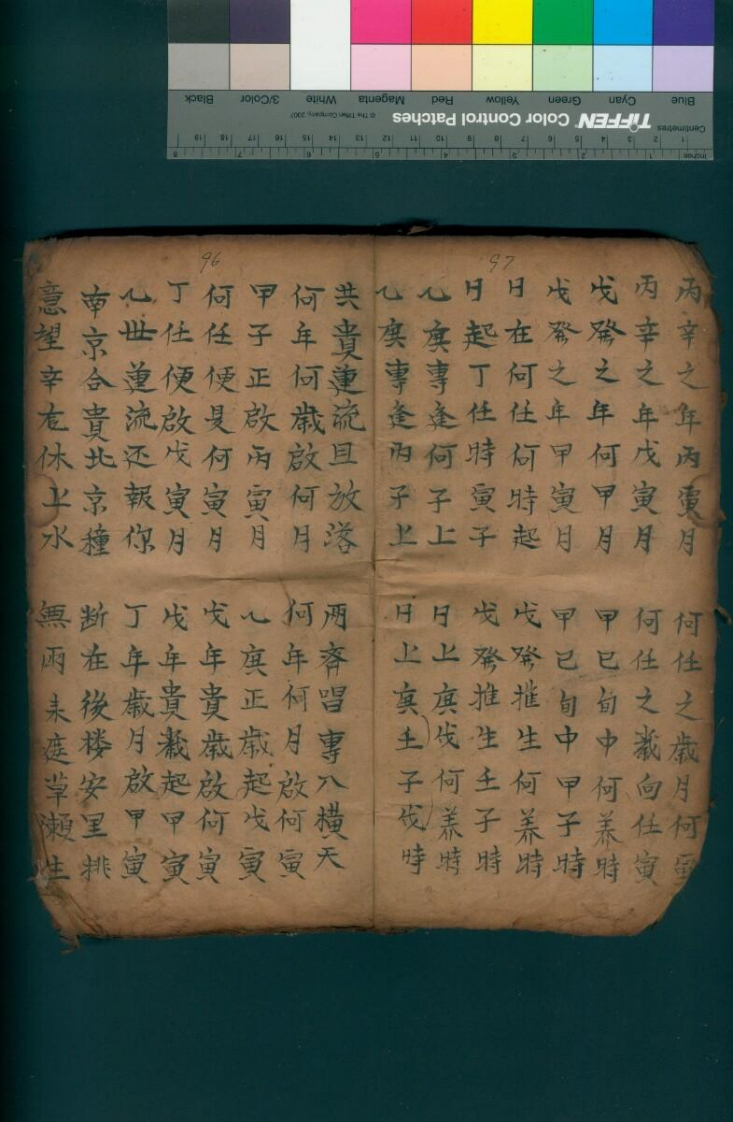 Inches
Centimetres
TIFFEN Color Control Patches
© The Tiffen Company, 2007
Blue Cyan Green Yellow Red Magenta White 3/Color Black
97
丙辛之年丙寅月 何任之歲月何寅
丙辛之年戊寅月 何任之歲向任寅
戊發之年何甲月 甲已旬中何养時
戊發之年甲寅月 甲已旬中甲子時
日在何任何時起 戊發推生何养時
日起丁任時寅子 戊發推生壬子時
乙庚專逢何子上 日上庚伐何养時
乙庚專逢丙子上 日上庚壬子伐時
96
共貴蓮流且放落 兩齐唱專八橫天
何年何歲啟何月 何年何月啟何寅
甲子正啟丙寅月 乙庚正歲起戊寅
何任便是何寅月 戊年貴歲啟何寅
丁任便啟戊寅月 戊年貴歲起甲寅
乙世蓮流还報你 丁年歲月啟甲寅
南京合貴北京種 断在後楼安里挑
意望辛右休上水 無雨未庭草瀬生